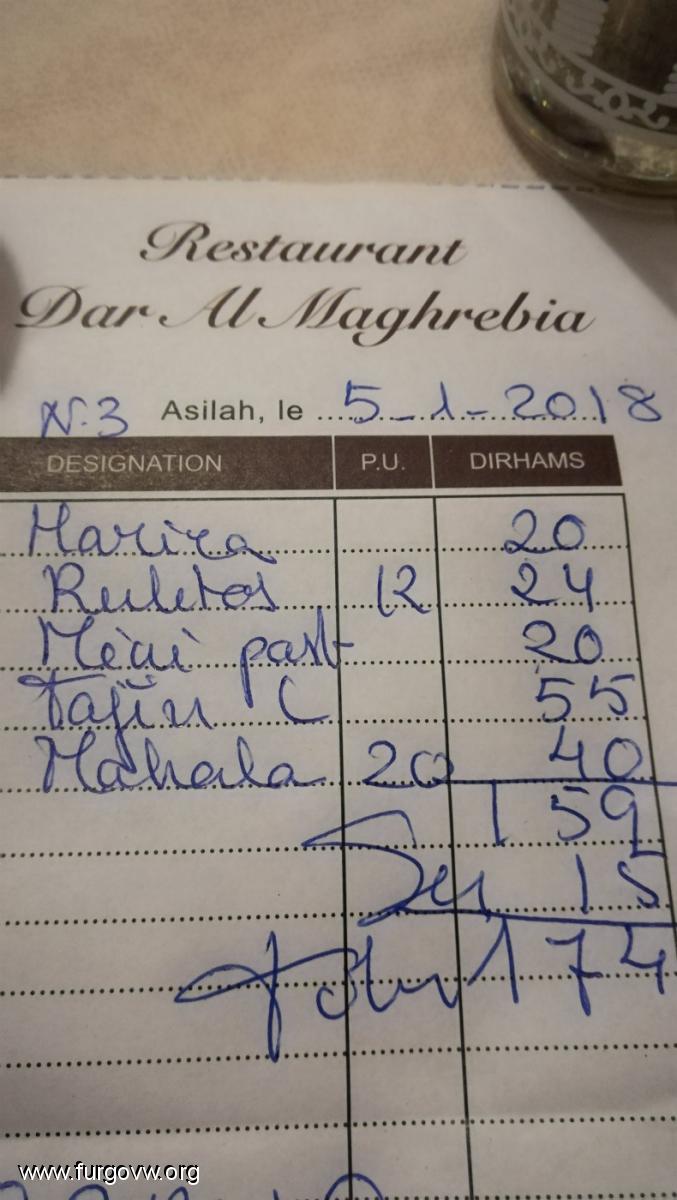 Restaurant
Dar Al Maghrebia
N.3 Asilah, le 5-1-2018
DESIGNATION P.U. DIRHAMS
Harira 20
12 24
past 20
Tajin C 55
Mahala 20 40
159
Ser 15
174
www.furgovw.org